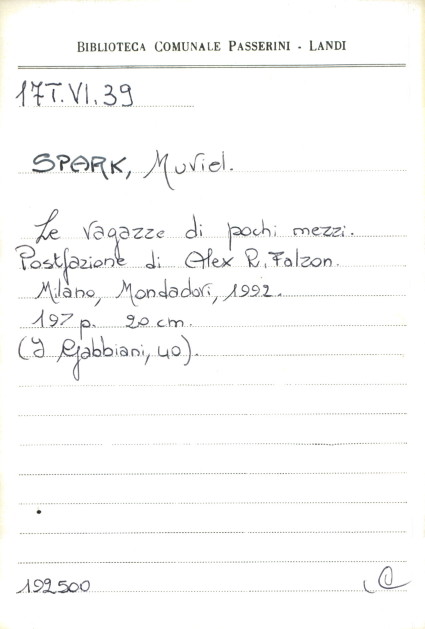 BIBLIOTECA COMUNALE PASSERINI - LANDI
17T.VI.39
SPARK, Muriel.
Le ragazze di pochi mezzi.
Postfazione di Alex R. Falzon.
Milano, Mondadori, 1992.
197 p. 20 cm.
(I Gabbiani, 40).
192500